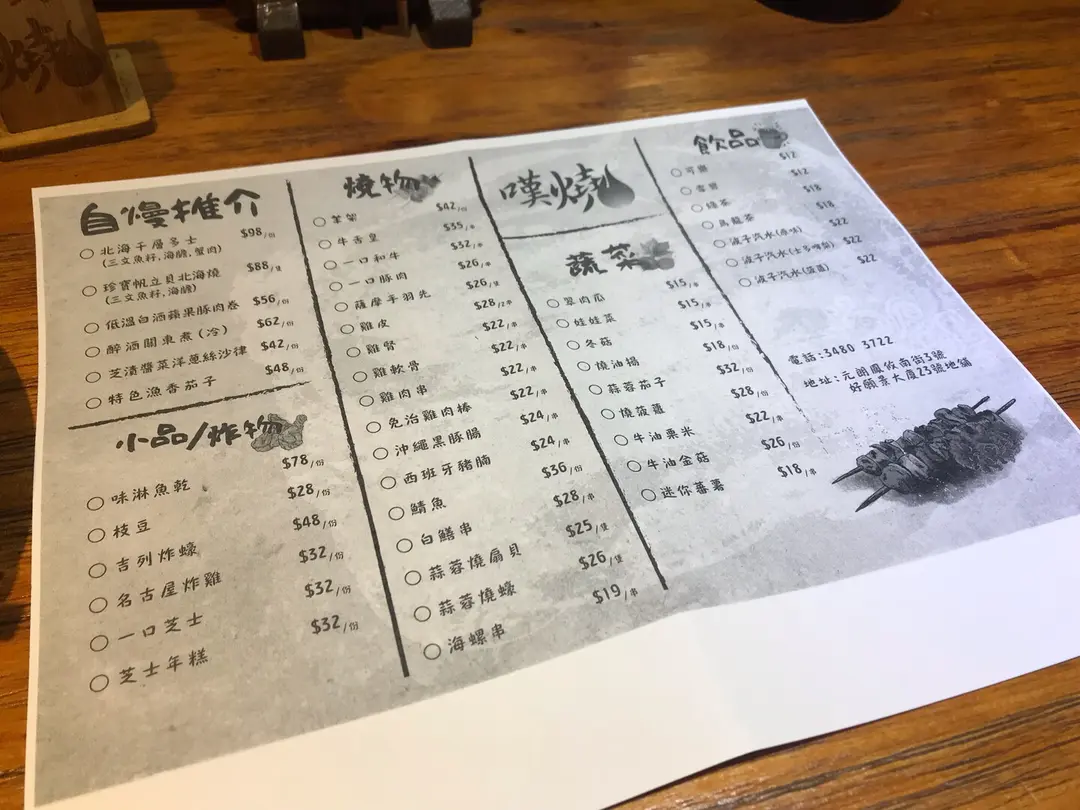 燒
自慢推介
北海千層多士 $98/份
(三文魚籽,海膽,蟹肉)
珍寶帆立貝北海燒 $88/隻
(三文魚籽,海膽)
低溫白酒蘋果豚肉卷 $56/份
醉酒關東煮(冷) $62/份
芝漬醬菜洋蔥絲沙律 $42/份
特色漁香茄子 $48/份
小品/炸物
味淋魚乾 $78/份
枝豆 $28/份
吉列炸蠔 $48/份
名古屋炸雞 $32/份
一口芝士 $32/份
芝士年糕 $32/份
燒物
羊架 $42/份
牛舌皇 $35/串
一口和牛 $32/串
一口豚肉 $26/串
薩摩手羽先 $26/隻
雞皮 $28/2串
雞腎 $22/串
雞軟骨 $22/串
雞肉串 $22/串
免治雞肉棒 $22/串
沖繩黑豚腸 $24/串
西班牙豬腩 $24/串
鯖魚 $36/份
白鱔串 $28/串
蒜蓉燒扇貝 $25/隻
蒜蓉燒蠔 $26/隻
海螺串 $19/串
嘆燒
蔬菜
翠肉瓜 $15/串
娃娃菜 $15/串
冬菇 $15/串
燒油揚 $18/份
蒜蓉茄子 $32/份
燒菠蘿 $28/份
牛油粟米 $22/串
牛油金菇 $26/份
迷你蕃薯 $18/串
飲品
可樂 $12
雪碧 $12
綠茶 $18
烏龍茶 $18
波子汽水(原味) $22
波子汽水(士多啤梨) $22
波子汽水 $22
電話:3480 3722
地址:元朗鳳攸南街3號
好順景大廈23號地舖